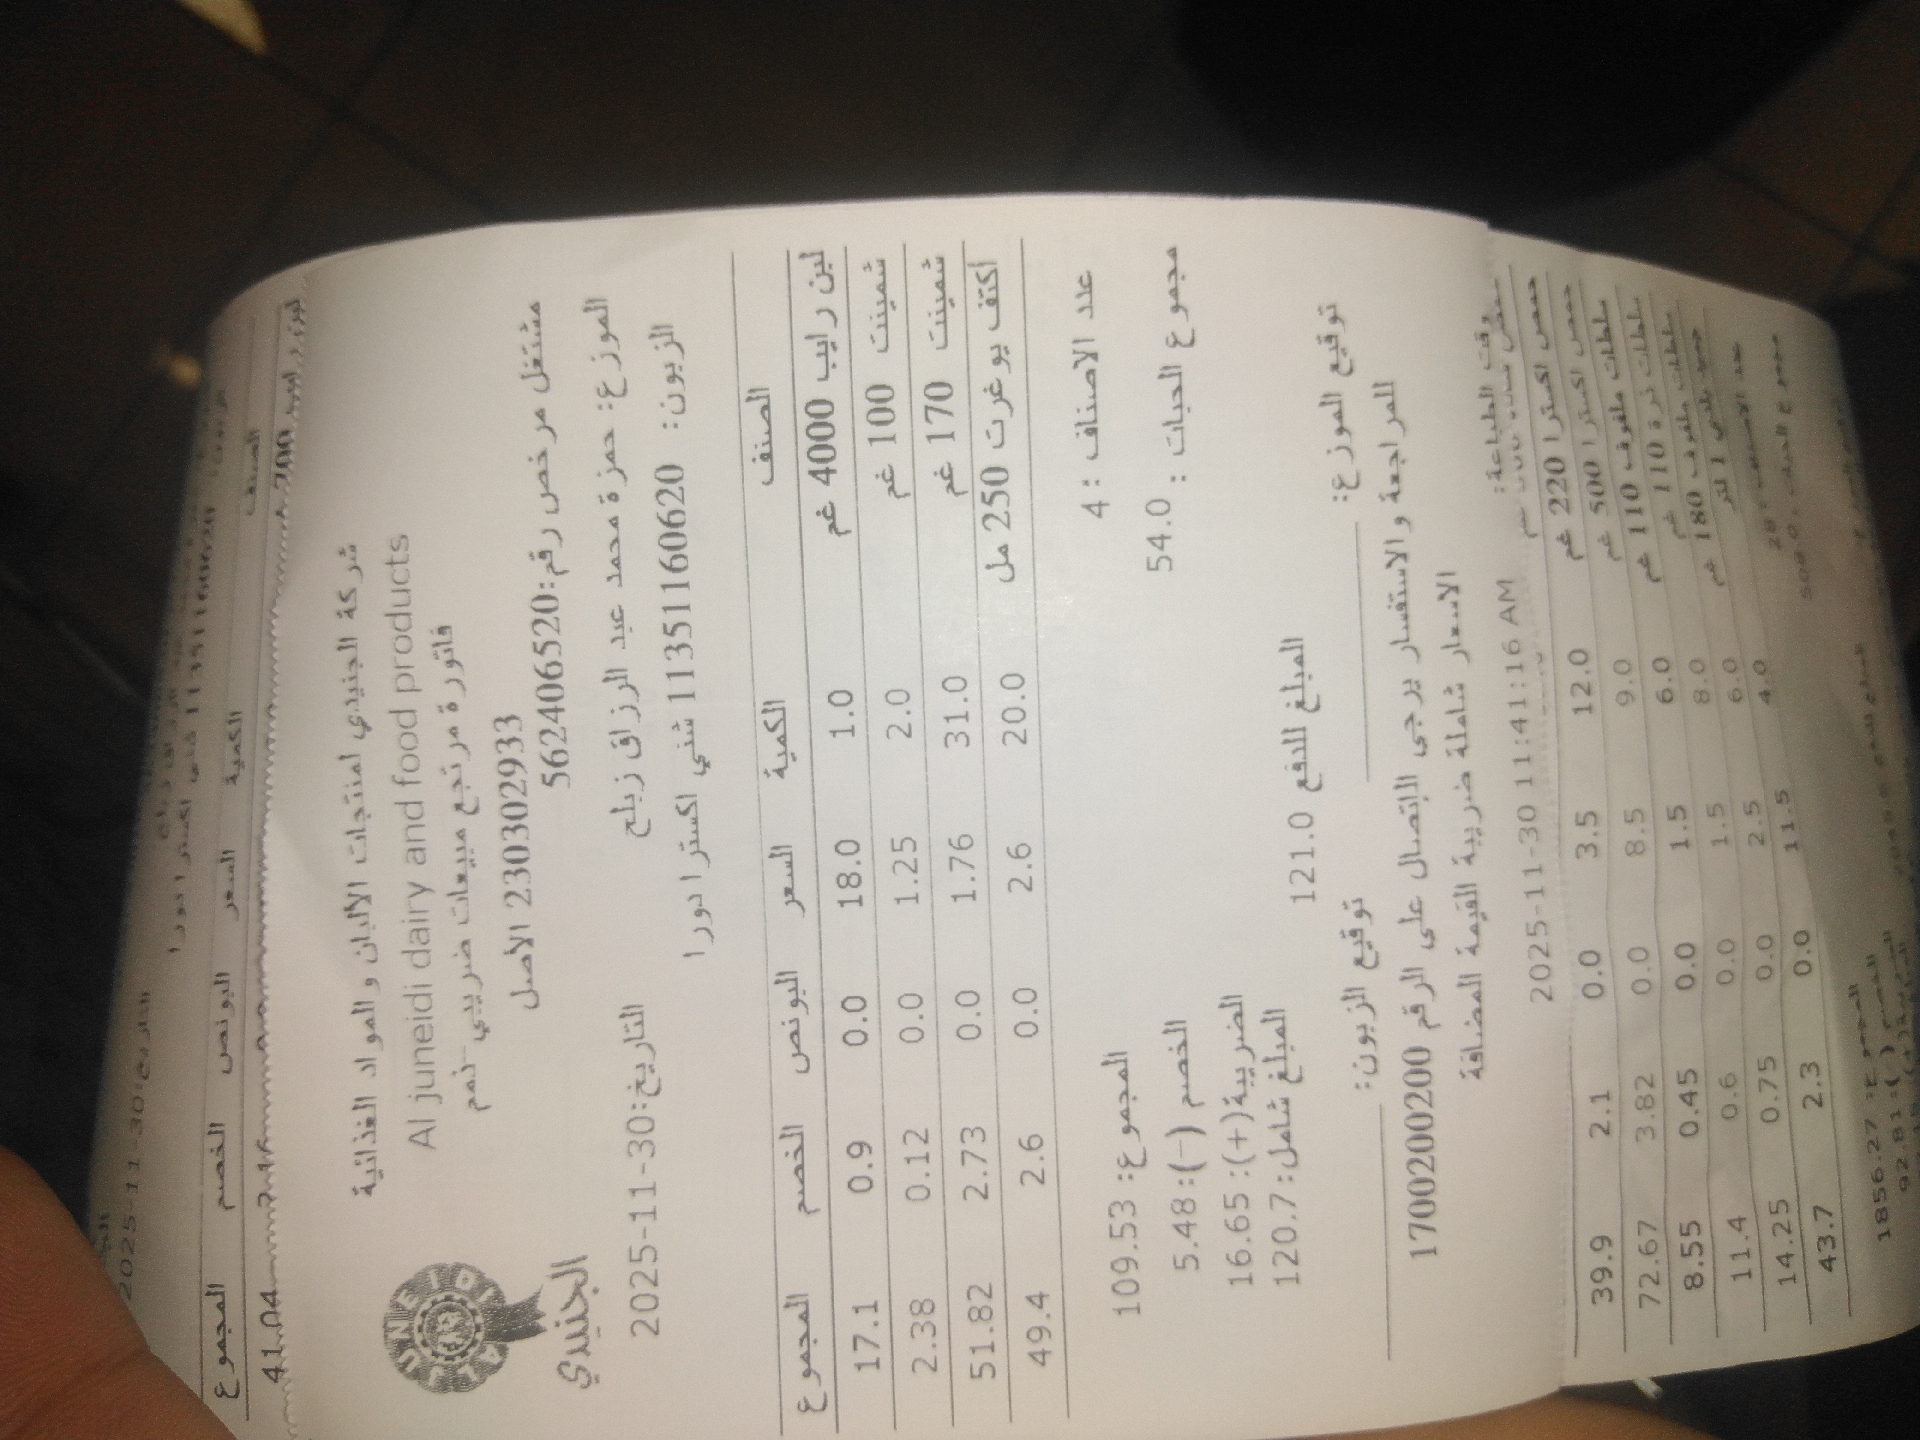 شركة الجنيدي لمنتجات الالبان والمواد الغذائية
Al juneidi dairy and food products
فاتورة مرتجع مبيعات ضريبي-ذمم
230302933 الأصل
مشتغل مرخص رقم:562406520
الجنيدي
الموزع: حمزة محمد عبد الرزاق زبلح
التاريخ:2025-11-30
الزبون: 11351160620 شني اكسترا دورا
الصنف الكمية السعر البونص الخصم المجموع
لبن رايب 4000 غم 1.0 18.0 0.0 0.9 17.1
شمينت 100 غم 2.0 1.25 0.0 0.12 2.38
شمينت 170 غم 31.0 1.76 0.0 2.73 51.82
اكتف يوغرت 250 مل 20.0 2.6 0.0 2.6 49.4
عدد الاصناف : 4
المجموع: 109.53
مجموع الحبات : 54.0
الخصم (-): 5.48
الضريبة(+): 16.65
المبلغ شامل: 120.7
المبلغ للدفع 121.0
توقيع الموزع:
توقيع الزبون:
للمراجعة والاستفسار يرجى الاتصال على الرقم 1700200200
الاسعار شاملة ضريبة القيمة المضافة
وقت الطباعة: 2025-11-30 11:41:16 AM
حمص اكسترا 220 غم 12.0 3.5 0.0 2.1 39.9
حمص اكسترا 500 غم 9.0 8.5 0.0 3.82 72.67
سلطات ملفوف 110 غم 6.0 1.5 0.0 0.45 8.55
سلطات ذرة 110 غم 8.0 1.5 0.0 0.6 11.4
سلطات ملفوف 180 غم 6.0 2.5 0.0 0.75 14.25
4.0 11.5 0.0 2.3 43.7
1856.27
92.81